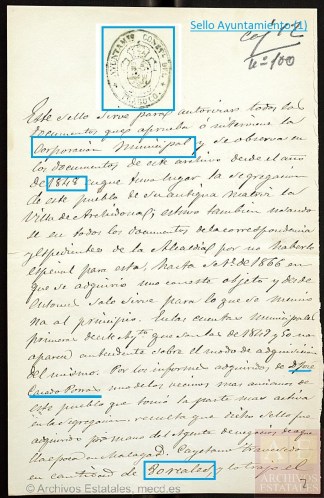 Sello Ayuntamiento (1)
Cajª 82
nº 100
AYUNTAMTO CONSTL DE
Este Sello Sirve para autorizar todos los
documentos que aprueba ó interviene la
Corporacion Municipal, y se observa en
los documentos de este archivo desde el año
de 1848 en que tuvo lugar la segregacion
de este pueblo de su antigua matriz la
Villa de Archidona, y estuvo tambien usando
se en todos los documentos de la correspondencia
y espedientes de la Alcaldia, por no haberlo
especial para esta, hasta de 1866 en
que se adquirió uno con este objeto y desde
entonces solo sirve para lo que se mencio
na al principio. En las cuentas Municipales
primeras de este Aytº que son las de 1849 y 50 no
aparece antecedente sobre el modo de adquisicion
del mismo. Por los informes adquiridos de D. Jose
Casado uno de los vecinos mas ancianos de
este pueblo que tomó la parte mas activa
en la segregacion resulta que dicho Sello fue
adquirido por mano del Agente de negocios de aque
lla epoca en Malaga D. Cayetano
en cantidad de reales, y lo trajo el
© Archivos Estatales, mecd.es